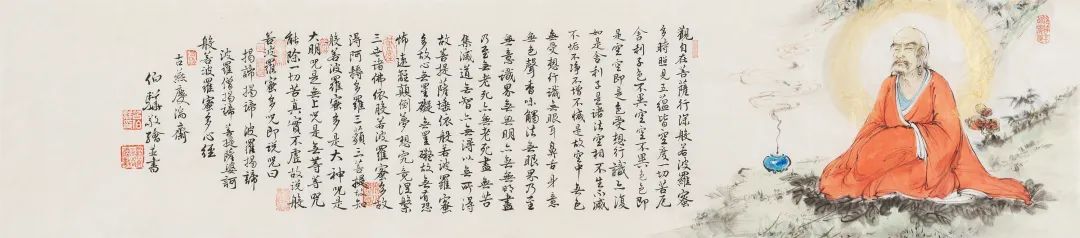 觀自在菩薩行深般若波羅蜜
多時照見五蘊皆空度一切苦厄
舍利子色不異空空不異色色即
是空空即是色受想行識亦復
如是舍利子是諸法空相不生不滅
不垢不淨不增不減是故空中無色
無受想行識無眼耳鼻舌身意
無色聲香味觸法無眼界乃至
無意識界無無明亦無無明盡
乃至無老死亦無老死盡無苦
集滅道無智亦無得以無所得
故菩提薩埵依般若波羅蜜
多故心無罣礙無罣礙故無有恐
怖遠離顛倒夢想究竟涅槃
三世諸佛依般若波羅蜜多故
得阿耨多羅三藐三菩提故知
般若波羅蜜多是大神咒是
大明咒是無上咒是無等等咒
能除一切苦真實不虛故說般
若波羅蜜多咒即說咒曰
揭諦揭諦 波羅揭諦
波羅僧揭諦 菩提薩婆訶
般若波羅蜜多心經
慶 齋
伯 敬繪並書